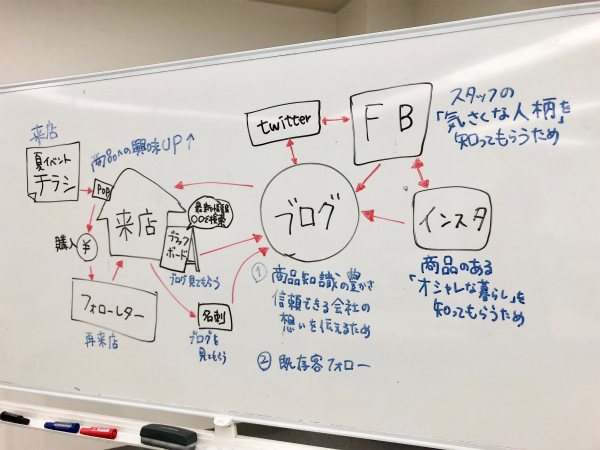 来店
夏イベント
チラシ
商品への興味UP↑
POP
来店
最新情報は
〇〇で検索
ブラック
ボード
ブログ見てもらう
購入
¥
フォローレター
再来店
名刺
ブログを
見てもらう
twitter
FB
ブログ
インスタ
スタッフの
「気さくな人柄」を
知ってもらうため
商品のある
「オシャレな暮らし」を
知ってもらうため
① 商品知識の豊かさ
信頼できる会社の
想いを伝えるため
② 既存客フォロー